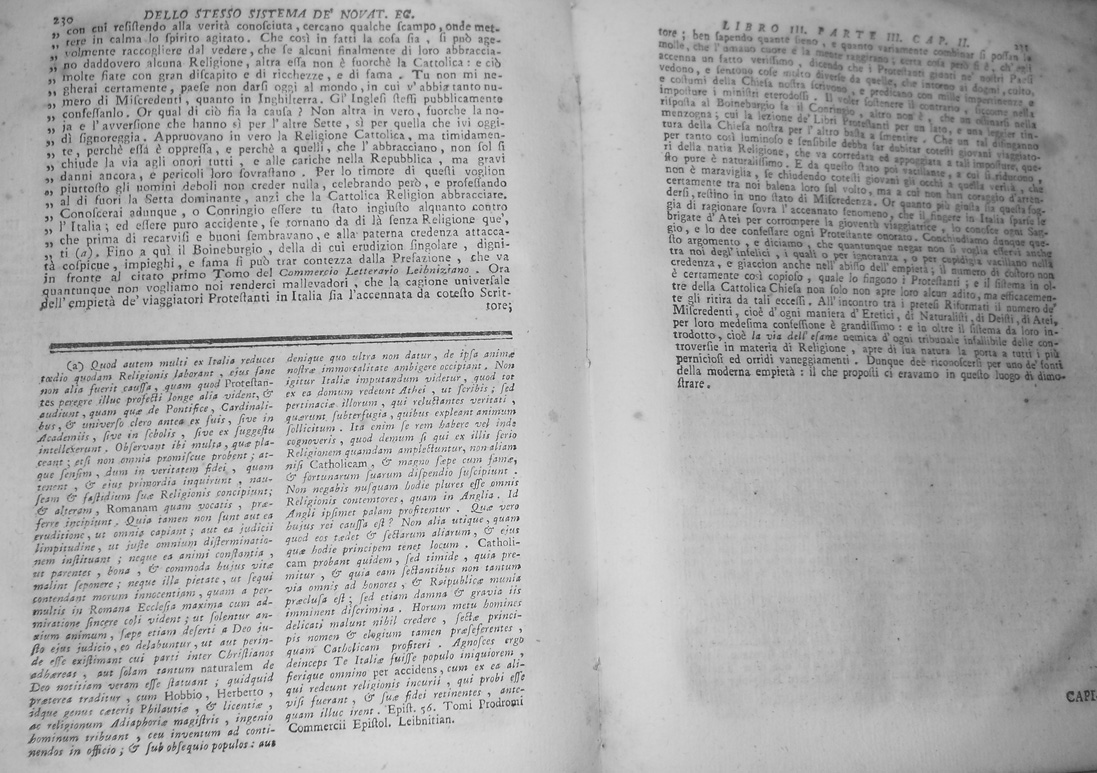 230
DELLO STESSO SISTEMA DE' NOVAT. EC.
„ con cui resistendo alla verità conosciuta, cercano qualche scampo, onde met-
„ tere in calma lo spirito agitato. Che così in fatti la cosa sia, si può age-
„ volmente raccogliere dal vedere, che se alcuni finalmente di loro abbraccia-
„ no daddovero alcuna Religione, altra essa non è fuorchè la Cattolica: e ciò
„ molte fiate con gran discapito e di ricchezze, e di fama. Tu non mi ne-
„ gherai certamente, paese non darsi oggi al mondo, in cui v'abbia tanto nu-
„ mero di Miscredenti, quanto in Inghilterra. Gl' Inglesi stessi pubblicamente
„ confessanlo. Or qual di ciò sia la causa? Non altra in vero, fuorche la no-
„ ja e l'avversione che hanno sì per l'altre Sette, sì per quella che ivi oggi-
„ dì signoreggia. Appruovano in vero la Religione Cattolica, ma timidamen-
„ te, perchè essa è oppressa, e perchè a quelli, che l'abbracciano, non sol si
„ chiude la via agli onori tutti, e alle cariche nella Repubblica, ma gravi
„ danni ancora, e pericoli loro sovrastano. Per lo timore di questi voglion
„ piuttosto gli uomini deboli non creder nulla, celebrando però, e professando
„ al di fuori la Setta dominante, anzi che la Cattolica Religion abbracciare.
„ Conoscerai adunque, o Conringio essere tu stato ingiusto alquanto contro
„ l'Italia; ed essere puro accidente, se tornano da di là senza Religione que',
„ che prima di recarvisi e buoni sembravano, e alla paterna credenza attacca-
„ ti (a). Fino a quì il Boineburgio, della di cui erudizion singolare, digni-
tà cospicue, impieghi, e fama si può trar contezza dalla Prefazione, che va
in fronte al citato primo Tomo del Commercio Letterario Leibniziano. Ora
quantunque non vogliamo noi renderci mallevadori, che la cagione universale
dell'empietà de' viaggiatori Protestanti in Italia sia l'accennata da cotesto Scrit-
tore;
(a) Quod autem multi ex Italia reduces
tædio quodam Religionis laborant, ejus sane
non alia fuerit caussa, quam quod Protestan-
tes peregre illuc profecti longe alia vident, &
audiunt, quam quæ de Pontifice, Cardinali-
bus, & universo clero antea ex suis, sive in
Academiis, sive in scholis, sive ex suggestu
intellexerunt. Observant ibi multa, quæ pla-
ceant; etsi non omnia promiscue probent; at-
que sensim, dum in veritatem fidei, quam
tenent, & ejus primordia inquirunt, nau-
seam & fastidium suæ Religionis concipiunt;
& alteram, Romanam quam vocatis, præ-
ferre incipiunt. Quia tamen non sunt aut ea
eruditione, ut omnia capiant; aut ea judicii
limpitudine, ut juste omnium disterminatio-
nem instituant; neque ea animi constantia,
ut parentes, bona, & commoda hujus vitæ
malint seponere; neque illa pietate, ut sequi
contendant morum innocentiam, quam a per-
multis in Romana Ecclesia maxima cum ad-
miratione sincere coli vident; ut solentur an-
xium animum, sæpe etiam deserti a Deo ju-
sto ejus judicio, eo delabuntur, ut aut perin-
de esse existimant cui parti inter Christianos
adhæreas, aut solam tantum naturalem de
Deo notitiam veram esse statuant; quidquid
præterea traditur, cum Hobbio, Herberto,
idque genus cæteris Philautiæ, & licentiæ,
ac religionum Adiaphoriæ magistris, ingenio
hominum tribuant, ceu inventum ad conti-
nendos in officio; & sub obsequio populos: aut
denique quo ultra non datur, de ipsa animæ
nostræ immortalitate ambigere occipiant. Non
igitur Italiæ imputandum videtur, quod tot
ex ea domum redeunt Athei, ut scribis; sed
pertinaciæ illorum, qui reluctantes veritati,
quærunt subterfugia, quibus expleant animum
sollicitum. Ita enim se rem habere vel inde
cognoveris, quod demum si qui ex illis serio
Religionem quamdam amplectuntur, non aliam
nisi Catholicam, & magno sæpe cum famæ,
& fortunarum suarum dispendio suscipiunt.
Non negabis nusquam hodie plures esse omnis
Religionis contemtores, quam in Anglia. Id
Angli ipsimet palam profitentur. Quæ vero
hujus rei caussa est? Non alia utique, quam
quod eos tædet & sectarum aliarum, & ejus
quæ hodie principem tenet locum. Catholi-
cam probant quidem, sed timide, quia pre-
mitur, & quia eam sectantibus non tantum
via omnis ad honores, & Reipublicæ munia
præclusa est; sed etiam damna & gravia iis
imminent discrimina. Horum metu homines
delicati malunt nihil credere, sectæ princi-
pis nomen & elogium tamen præseferentes,
quam Catholicam profiteri. Agnosces ergo
deinceps Te Italiæ fuisse populo iniquiorem,
fierique omnino per accidens, cum ex ea ali-
qui redeunt religionis incurii, qui probi esse
visi fuerant, & suæ fidei retinentes, ante-
quam illuc irent. Epist. 56. Tomi Prodromi
Commercii Epistol. Leibnitian.
LIBRO III. PARTE III. CAP. II.
tore; ben sapendo quante sieno, e quanto variamente combinar si possan le
molle, che l'umano cuore e la mente raggirano; certa cosa però si è, ch'egli
accenna un fatto verissimo, dicendo che i Protestanti giunti ne' nostri Paesi
vedono, e sentono cose molto diverse da quelle, che intorno ai dogmi, culto,
e costumi della Chiesa nostra scrivono, e predicano con mille impertinenze e
imposture i ministri eterodossi. Il voler sostenere il contrario, siccome nella
risposta al Boineburgio fa il Conringio, altro non è, che un ostinarsi nella
menzogna; cui la lezione de' Libri Protestanti per un lato, e una legger tin-
tura della Chiesa nostra per l'altro basta a smentire. Che un tal disinganno
per tanto così luminoso e sensibile debba far dubitar cotesti giovani viaggiato-
ri della natia Religione, che va corredata ed appoggiata a tali imposture, que-
sto pure è naturalissimo. E da questo stato poi vacillante, a cui si riducono,
non è maraviglia, se chiudendo cotelli giovani gli occhi a quella verità, che
certamente tra noi balena loro sul volto, ma a cui non han coraggio d'arren-
dersi, restino in uno stato di Miscredenza. Or quanto più giusta sia questa fog-
gia di ragionare sovra l'accennato fenomeno, che il fingere in Italia sparse le
brigate d'Atei per corrompere la gioventù viaggiatrice, lo conosce ogni Sag-
gio, e lo dee confessare ogni Protestante onorato. Conchiudiamo dunque que-
sto argomento, e diciamo, che quantunque negar non si voglia esservi anche
tra noi degl'infelici, i quali o per ignoranza, o per cupidigia vacillano nella
credenza, e giaccion anche nell'abisso dell'empietà; il numero di costoro non
è certamente così copioso, quale lo fingono i Protestanti; e il sistema in ol-
tre della Cattolica Chiesa non solo non apre loro alcun adito, ma efficacemen-
te gli ritira da tali eccessi. All'incontro tra i pretesi Riformati il numero de'
Miscredenti, cioè d'ogni maniera d'Eretici, di Naturalisti, di Deisti, di Atei,
per loro medesima confessione è grandissimo: e in oltre il sistema da loro in-
trodotto, cioè la via dell'esame nemica d'ogni tribunale infallibile delle con-
troversie in materia di Religione, apre di sua natura la porta a tutti i più
perniciosi ed orridi vaneggiamenti. Dunque dee riconoscersi per uno de' fonti
della moderna empietà: il che proposti ci eravamo in questo luogo di dimo-
strare.
CAPI-